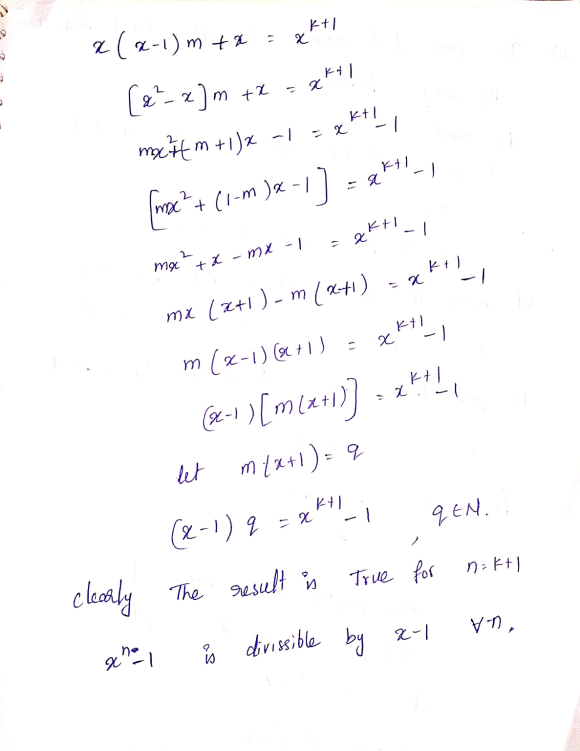 x(x-1)m+x = x^{k+1}
[x²-x]m +x = x^{k+1}
mx²+(m+1)x -1 = x^{k+1}-1
[mx²+(1-m)x-1] = x^{k+1}-1
mx²+x-mx-1 = x^{k+1}-1
mx(x+1)-m(x+1) = x^{k+1}-1
m(x-1)(x+1) = x^{k+1}-1
(x-1)[m(x+1)] = x^{k+1}-1
let m(x+1)=q
(x-1)q = x^{k+1}-1 , q∈N.
clearly The result is True for n=k+1
x^n-1 is divissible by x-1 ∀n.